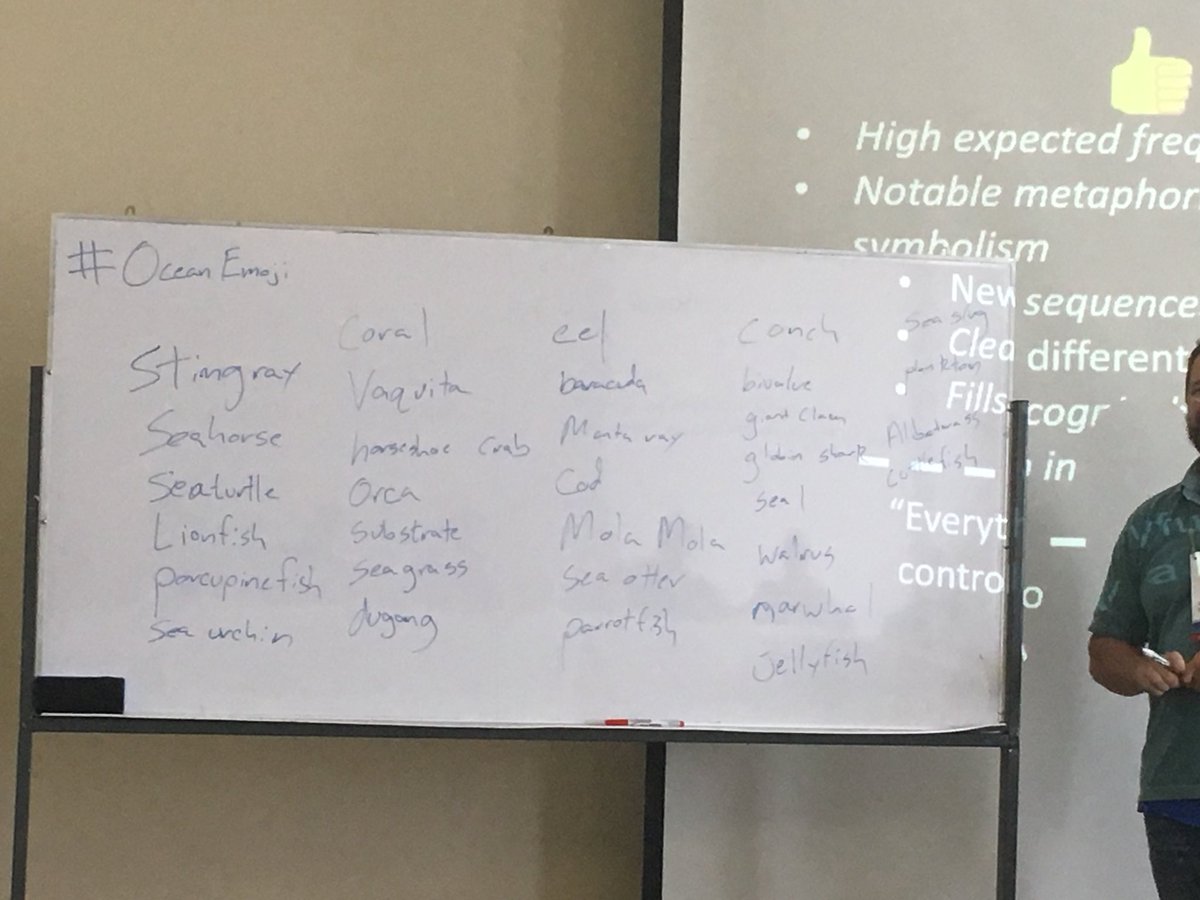 #OceanEmoji
Stingray
Seahorse
Seaturtle
Lionfish
porcupinefish
sea urchin
Coral
Vaquita
horseshoe crab
Orca
substrate
seagrass
dugong
eel
baracuda
Manta ray
Cod
Mola Mola
sea otter
parrotfish
conch
bivalve
giant clam
seal
walrus
narwhal
jellyfish
sea slug
plankton
• High expected freq
• Notable metaphor
symbolism
• New sequence
• Clea different
• Fills cogr
in
“Everyt
contro